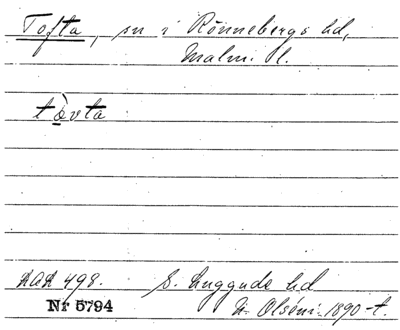 Tofta, sn i Rönnebergs hd,
Malm. l.
tòvta
LAL 498. S. Luggude hd
Nr 5794 N. Olséni 1890-t.